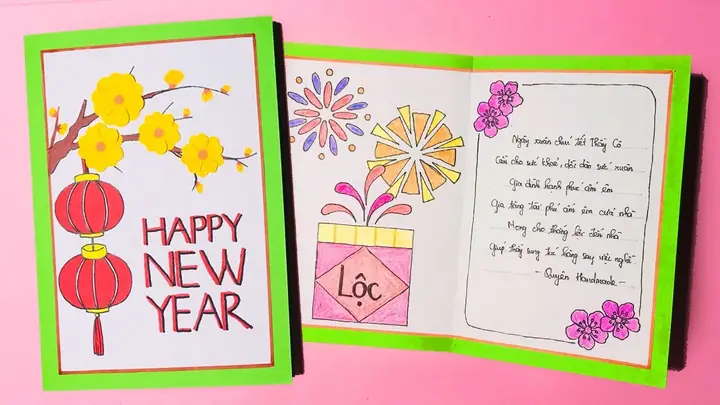 HAPPY
NEW
YEAR
Lộc
Ngày xuân chúc tết Thầy Cô
Cầu cho sức khoẻ, dồi dào sức xuân
Gia đình hạnh phúc ấm êm
Gia tăng tài phú ấm êm cửa nhà
Mong cho thắng lợi đến nhà
Giúp thầy sung túc hăng say với nghề
- Quyên Handmade -